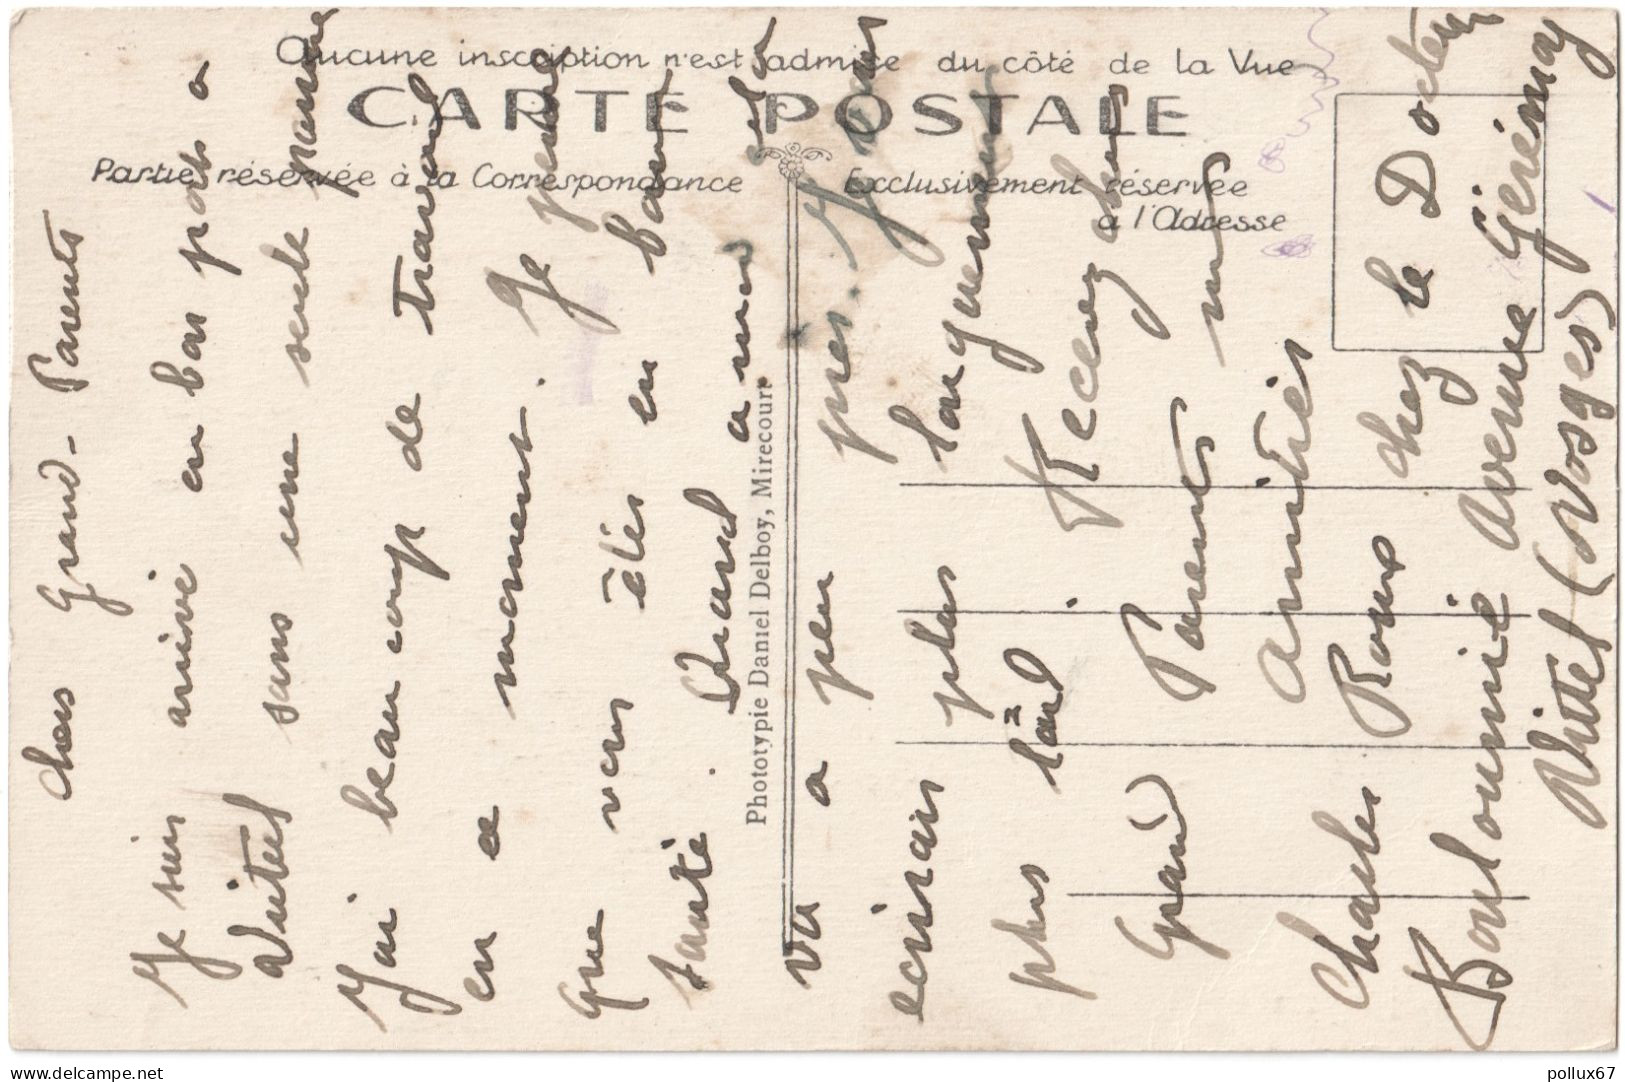 Aucune inscription n'est admise du côté de la Vue
CARTE POSTALE
Partie réservée à la Correspondance
Exclusivement réservée
à l'Adresse
Phototypie Daniel Delboy, Mirecourt
Chers Grand-Parents
Je suis arrivé en bon poids a
Vittel sans une seule panne
J'ai beaucoup de travail
en ce moment. Je pense
que vous êtes en bonne
santé. Quand a moi cela
va a peu pres. Je vous
ecrirais plus longuement
plus tard. Recevez chers
Grand Parents mes
amitiés
Charles Roux chez le Docteur
Bouloumié Avenue Gérémoy
Vittel (Vosges)
delcampe.net
pollux67